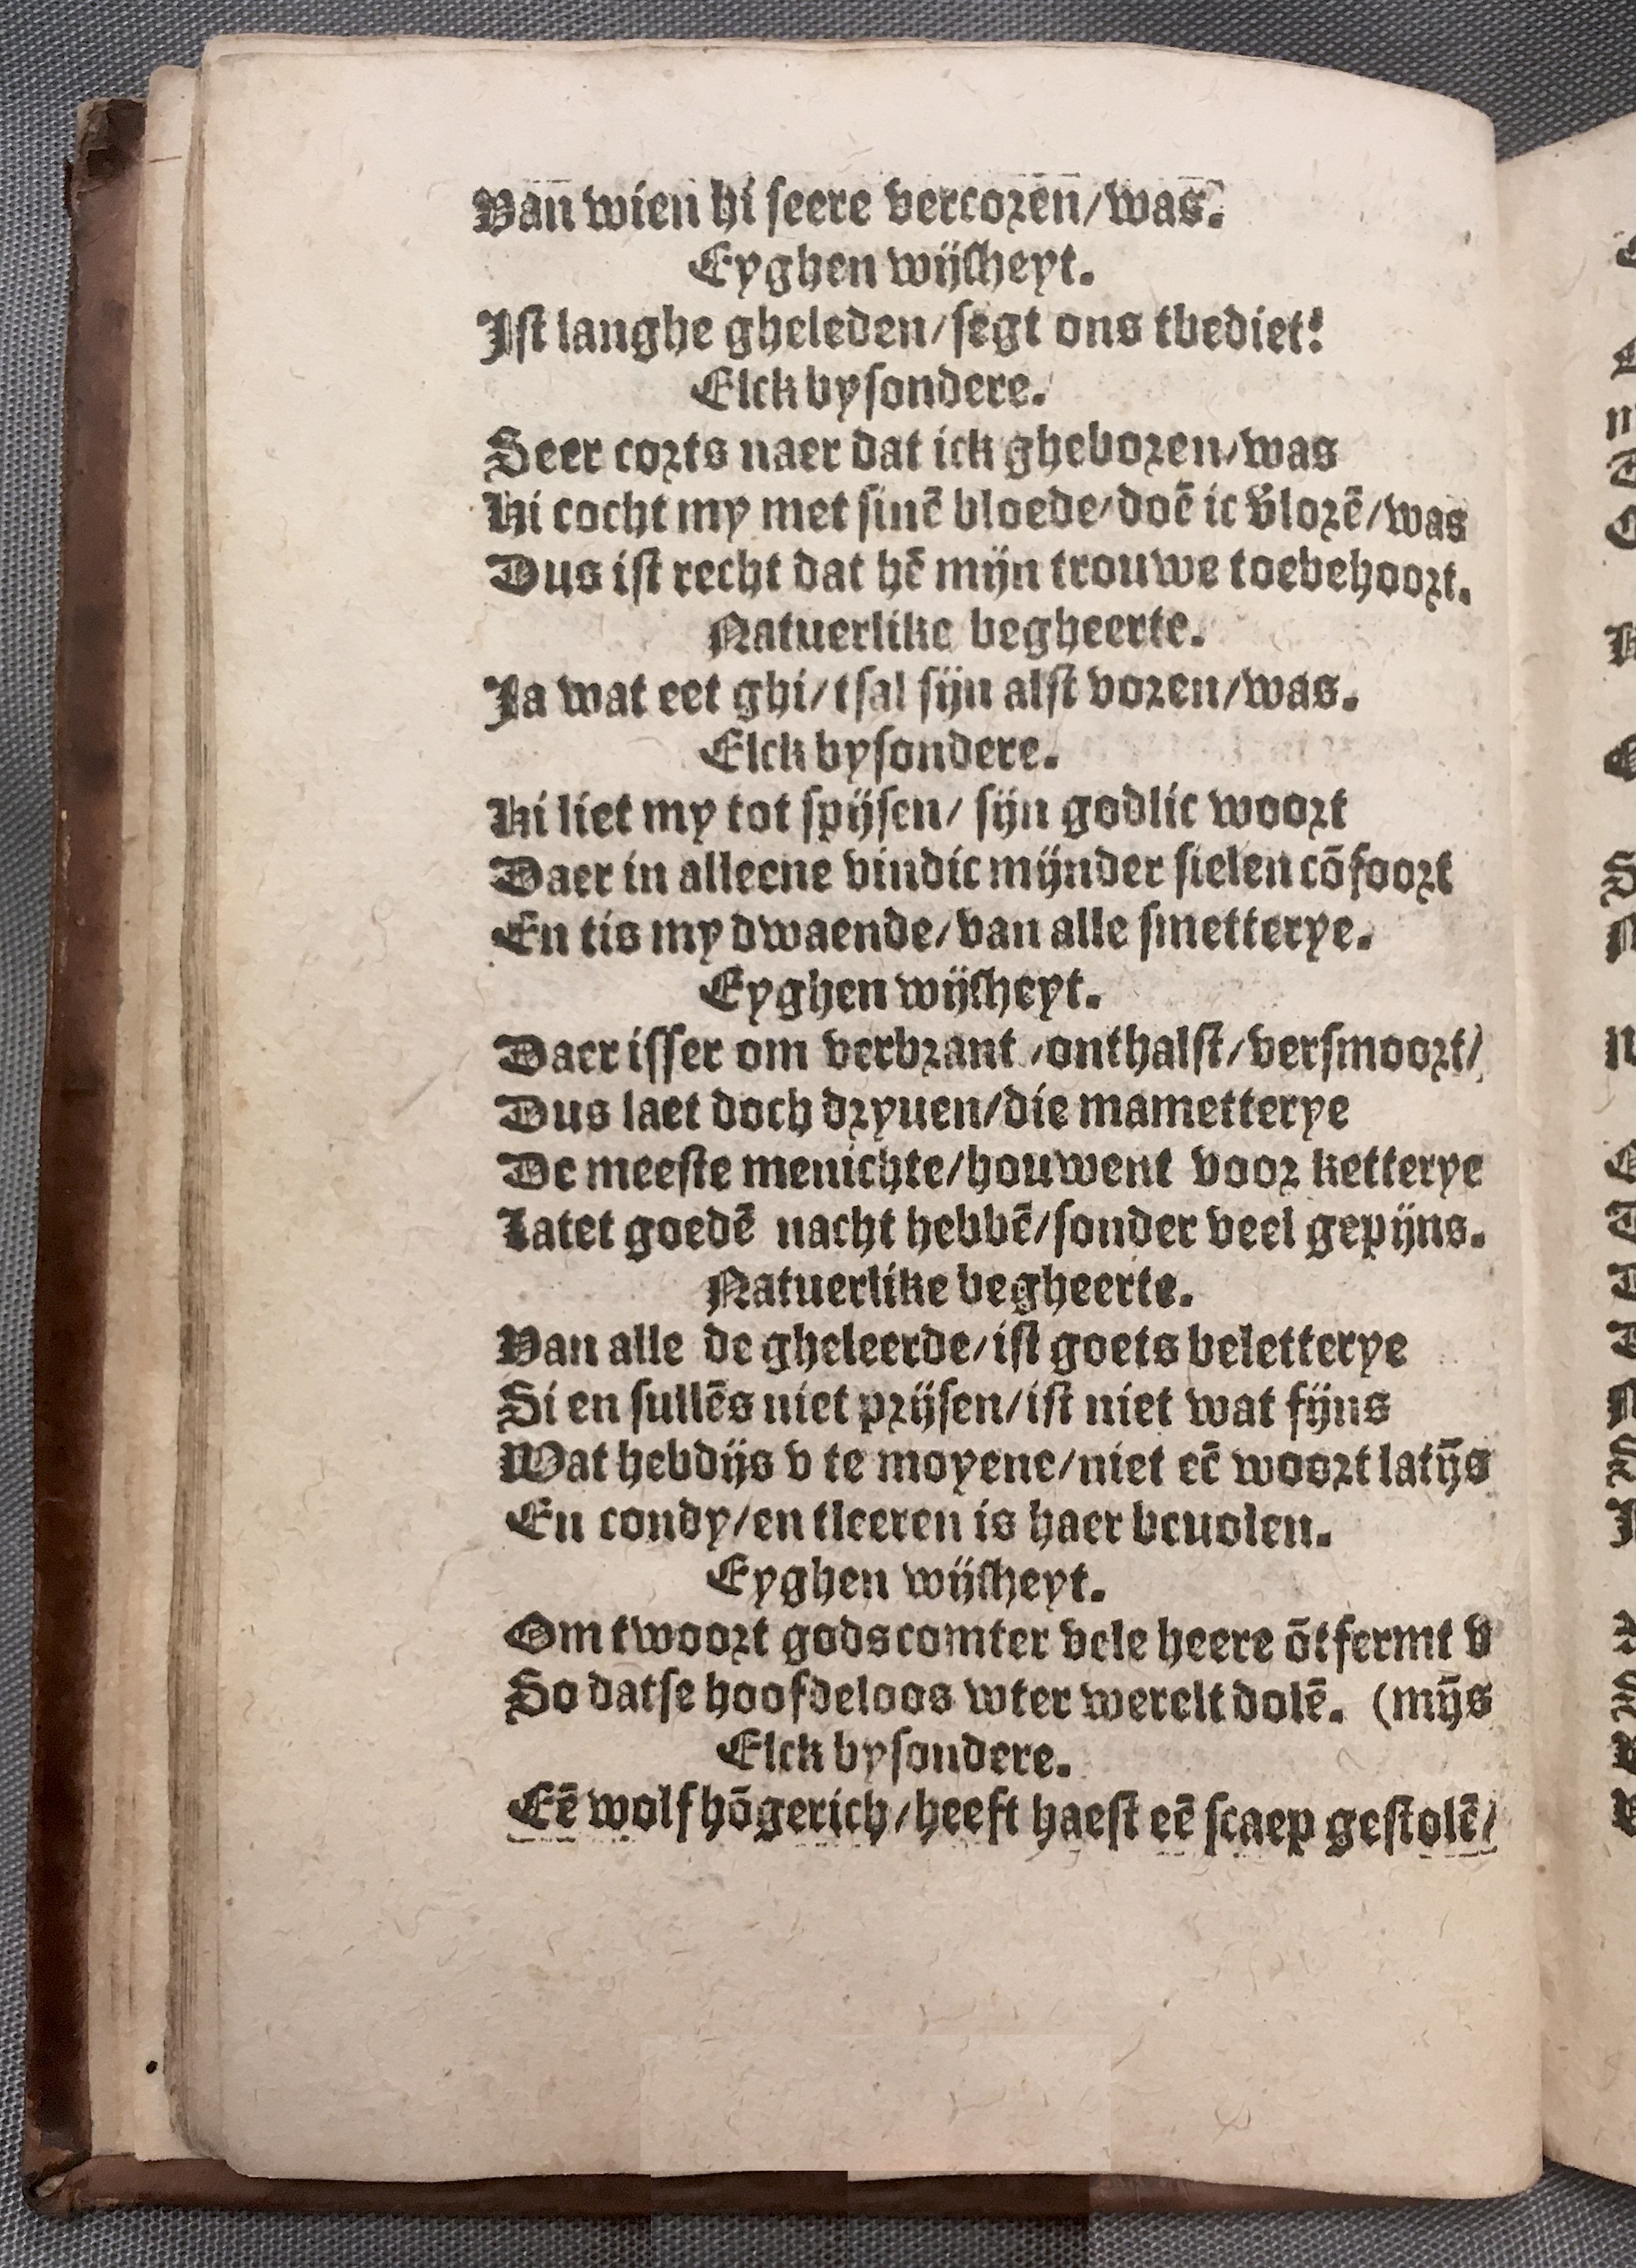 Van wien hi seere vercoren/was.
Eyghen wijsheyt.
Ist langhe gheleden/segt ons tbediet?
Elck bysondere.
Seer corts naer dat ick gheboren/was
Hi cocht my met sinē bloede/doē ic v̄lorē/was
Dus ist recht dat hē mijn trouwe toebehoort.
Natuerlike begheerte.
Ja wat eet ghi/tsal sijn alst voren/was.
Elck bysondere.
Hi liet my tot spijsen/ sijn godlic woort
Daer in alleene vindic mijnder sielen cōfoort
En tis my dwaende/van alle smetterye.
Eyghen wijsheyt.
Daer isser om verbrant /onthalst/versmoort/
Dus laet doch dryuen/die mametterye
De meeste menichte/houwent voor ketterye
Latet goedē nacht hebbē/sonder veel gepijns.
Natuerlike begheerte.
Van alle de gheleerde/ist goets beletterye
Si en sullēs niet prijsen/ist niet wat fijns
Wat hebdijs v te moyene/niet eē woort latij̄s
En condy/en tleeren is haer beuolen.
Eyghen wijsheyt.
Om twoort gods comter vele heere ōtfermt v
So datse hoofdeloos wter werelt dolē. (mij̄s
Elck bysondere.
Eē wolf hōgerich/heeft haest eē scaep gestolē/